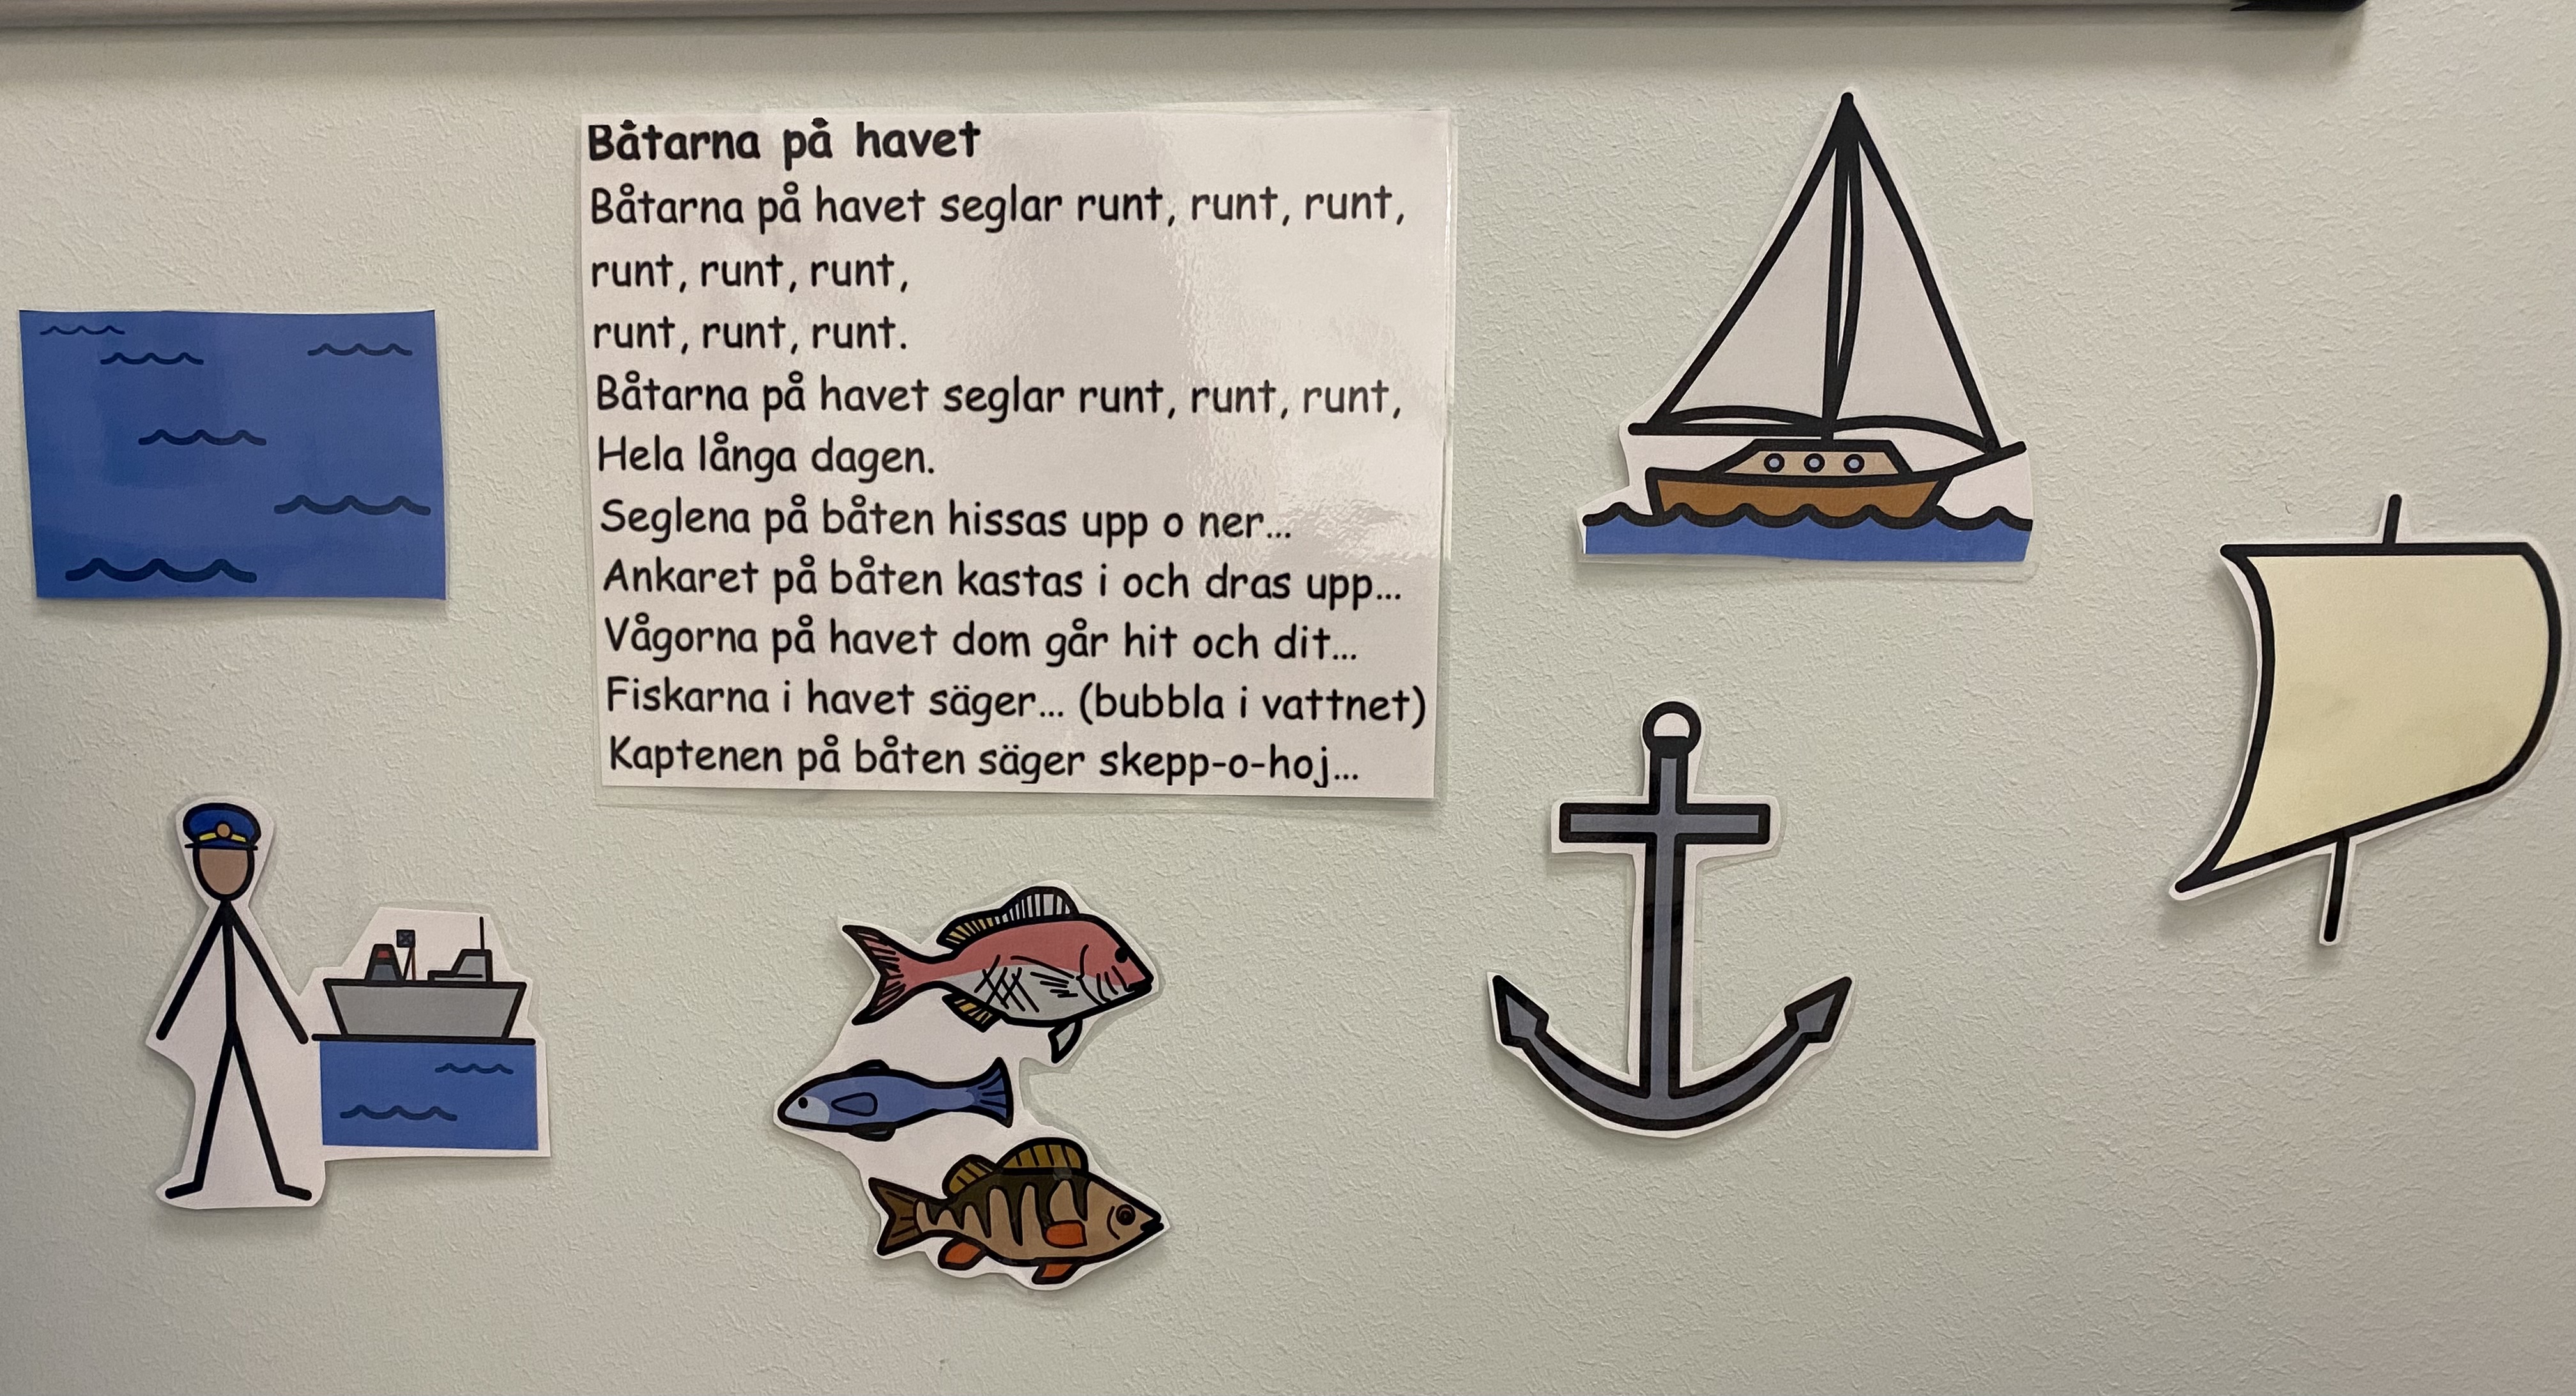 Båtarna på havet
Båtarna på havet seglar runt, runt, runt,
runt, runt, runt,
runt, runt, runt.
Båtarna på havet seglar runt, runt, runt,
Hela långa dagen.
Seglena på båten hissas upp o ner...
Ankaret på båten kastas i och dras upp...
Vågorna på havet dom går hit och dit...
Fiskarna i havet säger... (bubbla i vattnet)
Kaptenen på båten säger skepp-o-hoj...